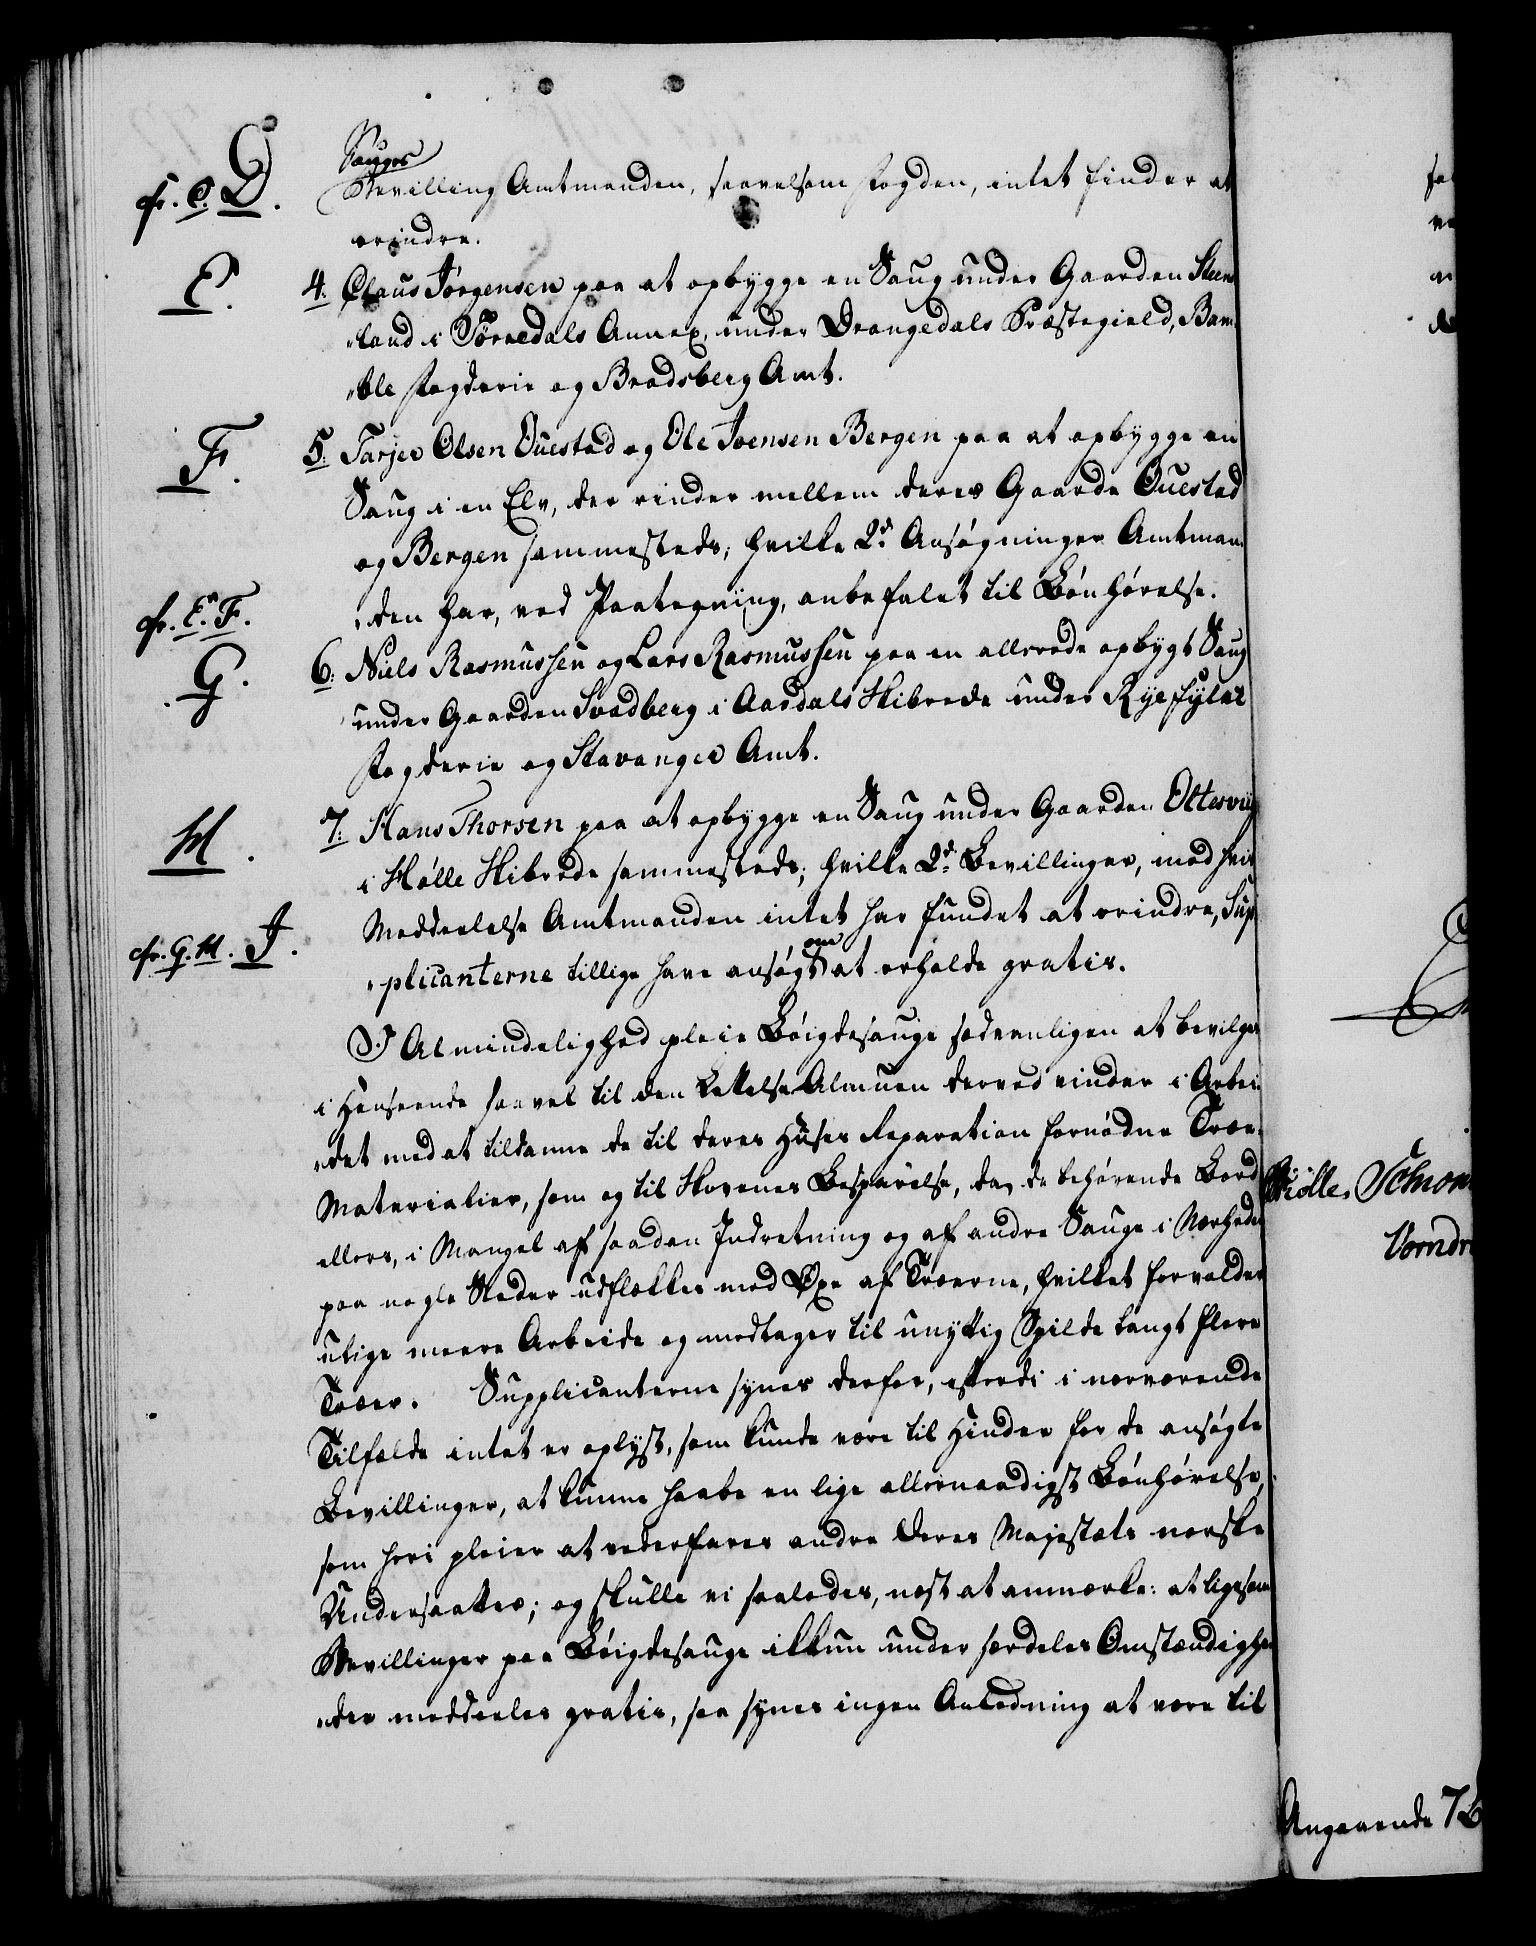 Sauges
cfr. C. D. Bevilling Amtmanden, saavelsom Fogden, intet finder at
erindre.
E. 4. Claus Jørgensen paa at opbygge en Saug under Gaarden Steens
„land i Tørredals Annex, under Drangedals Præstegield, Bam„
„ble Fogderie og Bradsberg Amt.
F. 5. Tarjer Olsen Ouestad og Ole Joensen Bergen paa at opbygge en
Saug i en Elv, der rinder mellem deres Gaarde Ouestad
og Bergen sammesteds; hvilke 2de Ansøgninger Amtman„
cfr. E. F. „den har, ved Paategning, anbefalet til Bønhørelse.
G. 6. Niels Rasmussen og Lars Rasmussen paa en allerede opbygt Saug
under Gaarden Svadberg i Aardals Skibrede under Ryefylke
Fogderie og Stavanger Amt.
H. 7. Hans Thorsen paa at opbygge en Saug under Gaarden Ottesviig
i Hølle Skibrede sammesteds; hvilke 2de Bevillinger, mod hvis
Meddeelelse Amtmanden intet har fundet at erindre, Sup„
cfr. G. H. J. „plicanterne tillige have ansøgt om at erholde gratis.
I Almindelighed pleie Bøigdesauge sædvanligen at bevilges
i Henseende saavel til den Lettelse Almuen derved vinder i Arbei„
„det med at tildanne de til deres Huses Reparation fornødne Træe„
Materialier, som og til Skovenes Besparelse, da de behøvende Bord
ellers, i Mangel af saadan Indretning og af andre Sauge i Nærheden
paa nogle Steder udflækkes med Øxe af Træerne, hvilket forvolder
ulige meere Arbeide og medtager til unyttig Spilde langt flere
Træer. Supplicanterne synes derfor, efterdi i nærværende
Tilfælde intet er oplyst, som kunde være til Hinder for de ansøgte
Bevillinger, at kunne haabe en lige allernaadigst Bønhørelse,
som heri pleier at vederfares andre Deres Majestæts norske
Undersaatter; og skulle vi saaledes, næst at anmærke: at ligesom
Bevillinger paa Bøigdesauge ikkun under særdeles Omstændighe„
„der meddeeles gratis, saa synes ingen Anledning at være til
Angaaende